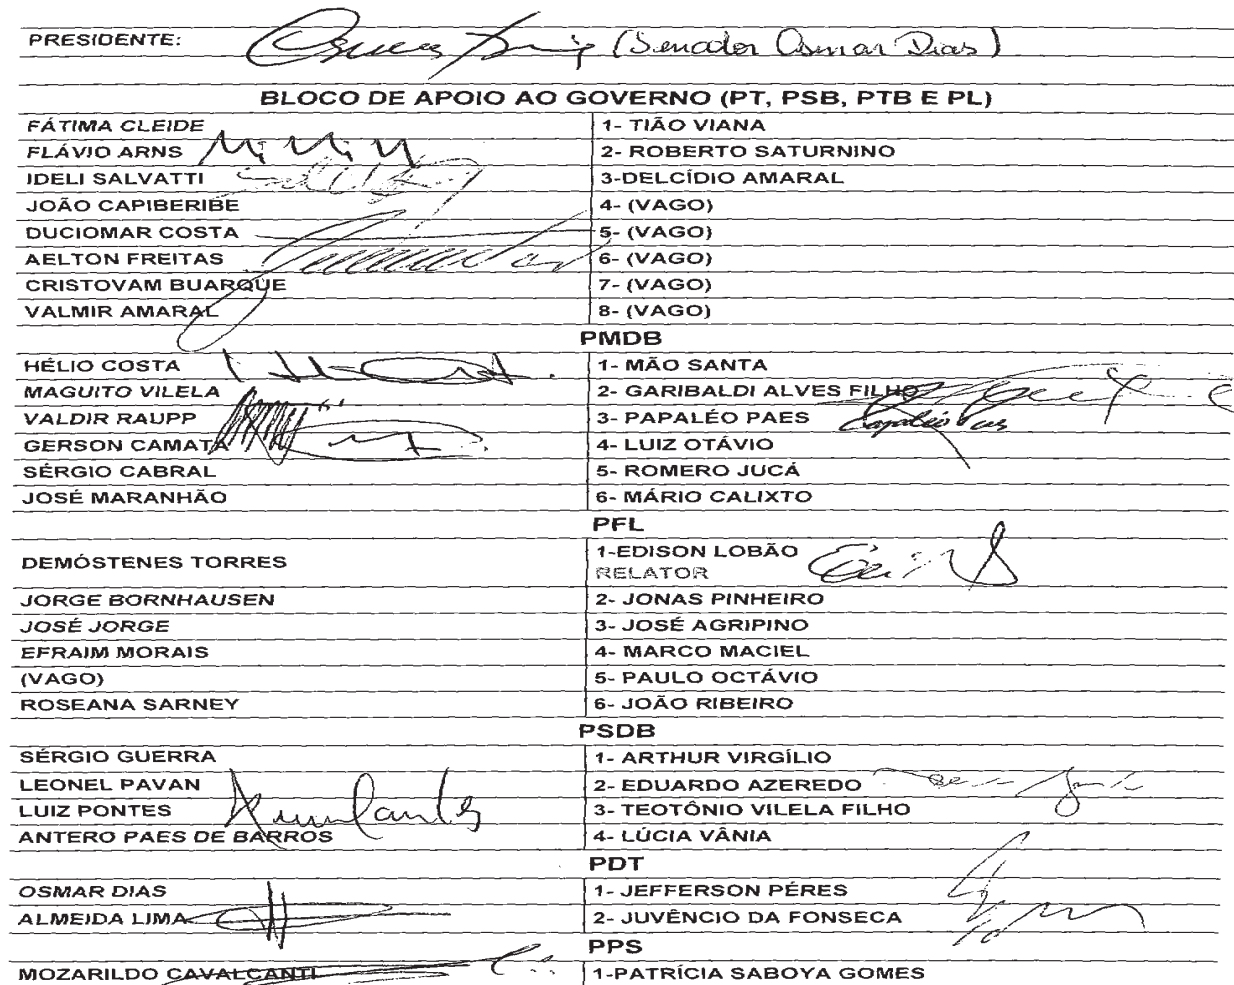 PRESIDENTE: (Senador Osmar Dias)
BLOCO DE APOIO AO GOVERNO (PT, PSB, PTB E PL)
FÁTIMA CLEIDE 1- TIÃO VIANA
FLÁVIO ARNS 2- ROBERTO SATURNINO
IDELI SALVATTI 3-DELCÍDIO AMARAL
JOÃO CAPIBERIBE 4- (VAGO)
DUCIOMAR COSTA 5- (VAGO)
AELTON FREITAS 6- (VAGO)
CRISTOVAM BUARQUE 7- (VAGO)
VALMIR AMARAL 8- (VAGO)
PMDB
HÉLIO COSTA 1- MÃO SANTA
MAGUITO VILELA 2- GARIBALDI ALVES FILHO
VALDIR RAUPP 3- PAPALÉO PAES
GERSON CAMATA 4- LUIZ OTÁVIO
SÉRGIO CABRAL 5- ROMERO JUCÁ
JOSÉ MARANHÃO 6- MÁRIO CALIXTO
PFL
DEMÓSTENES TORRES 1-EDISON LOBÃO
RELATOR
JORGE BORNHAUSEN 2- JONAS PINHEIRO
JOSÉ JORGE 3- JOSÉ AGRIPINO
EFRAIM MORAIS 4- MARCO MACIEL
(VAGO) 5- PAULO OCTÁVIO
ROSEANA SARNEY 6- JOÃO RIBEIRO
PSDB
SÉRGIO GUERRA 1- ARTHUR VIRGÍLIO
LEONEL PAVAN 2- EDUARDO AZEREDO
LUIZ PONTES 3- TEOTÔNIO VILELA FILHO
ANTERO PAES DE BARROS 4- LÚCIA VÂNIA
PDT
OSMAR DIAS 1- JEFFERSON PÉRES
ALMEIDA LIMA 2- JUVÊNCIO DA FONSECA
PPS
MOZARILDO CAVALCANTI 1-PATRÍCIA SABOYA GOMES